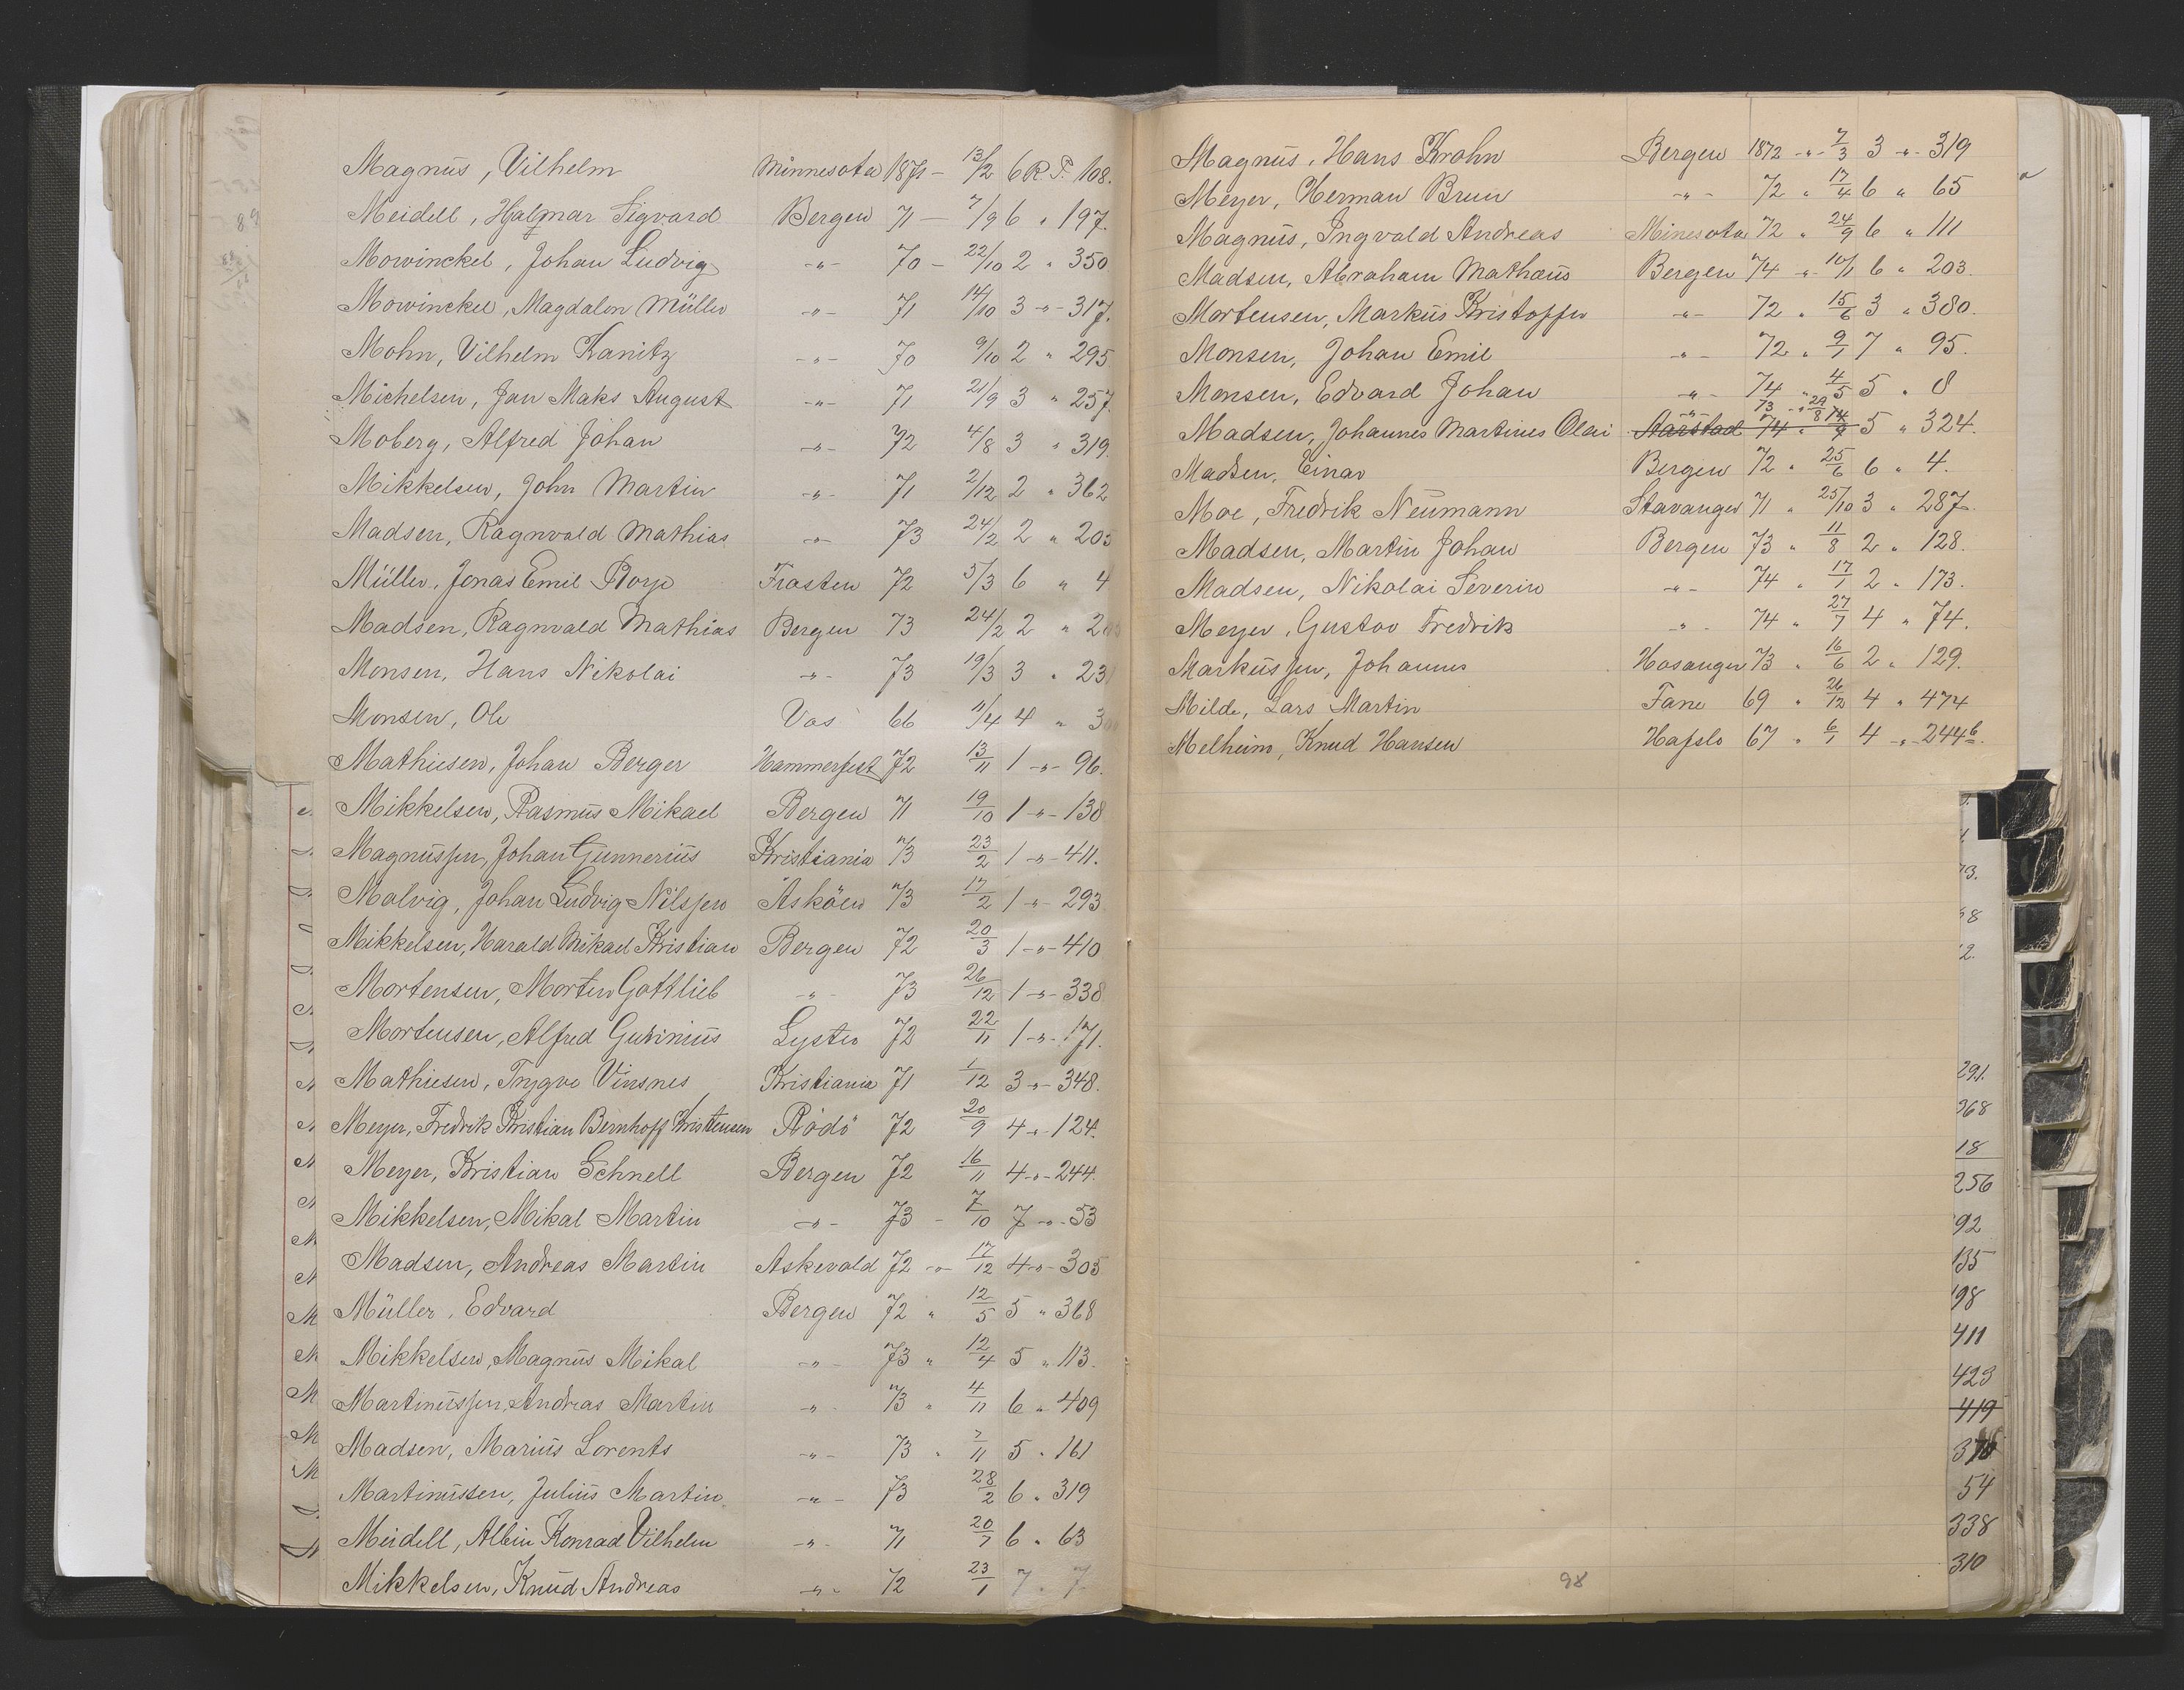 Magnus, Vilhelm Minnesota 1871 - 13/2 6 R.P. 108.
Meidell, Hjalmar Sigvard Bergen 71 - 7/9 6 " 197.
Mowinckel, Johan Ludvig -"- 70 - 22/10 2 " 350
Mowinckel, Magdalon Müller -"- 71 14/10 3 -"- 317.
Mohn, Vilhelm Kanitz -"- 70 9/10 2 " 295
Michelsen, Jan Maks August -"- 71 21/9 3 " 257.
Moberg, Alfred Johan -"- 72 4/8 3 " 319.
Mikkelsen, John Martin -"- 71 2/12 2 " 362
Madsen, Ragnvald Mathias -"- 73 24/2 2 " 205
Müller, Jonas Emil Borje Frosten 72 5/3 6 " 4
Madsen, Ragnvald Mathias Bergen 73 24/2 2 "
Monsen, Hans Nikolai -"- 73 19/3 3 "
Monsen, Ole Vos 66 11/4 4 "
Mathiesen, Johan Berger Hammerfest 72 13/11 1 -"- 96.
Mikkelsen, Rasmus Mikael Bergen 71 19/10 1 -"- 138
Magnussen, Johan Gunnerius Kristiania 73 23/2 1 -"- 411.
Malvig, Johan Ludvig Nilssen Asköen 73 17/2 1 -"- 293
Mikkelsen, Harald Mikael Kristian Bergen 72 20/3 1 -"- 410
Mortensen, Morten Gottlieb -"- 73 26/12 1 -"- 338
Mortensen, Alfred Gurinius Lyster 72 22/11 1 -"- 171.
Mathiesen, Trygve Vinsnes Kristiania 71 1/12 3 -"- 348.
Meyer, Fredrik Kristian Bernhoff Kristensen Rödö 72 20/9 4 -"- 124.
Meyer, Kristian Schnell Bergen 72 16/11 4 -"- 244.
Mikkelsen, Mikal Martin -"- 73 - 7/10 7 -"- 53
Madsen, Andreas Martin Askevold 72 -"- 17/12 4 -"- 305
Müller, Edvard Bergen 72 " 12/5 5 " 368
Mikkelsen, Magnus Mikal -"- 73 " 12/4 5 " 113.
Martinussen, Andreas Martin -"- 73 " 4/11 6 " 409
Madsen, Marius Lorents -"- 73 " 7/11 5 " 161
Martinussen, Julius Martin -"- 73 28/2 6 " 319
Meidell, Albin Konrad Vilhelm -"- 71 20/7 6 " 63
Mikkelsen, Knud Andreas -"- 72 23/1 7 " 7
Magnus, Hans Krohn Bergen 1872 -"- 7/3 3 -"- 319
Meyer, Herman Bruun -"- 72 " 17/4 6 " 65
Magnus, Ingvald Andreas Minesota 72 " 24/9 6 " 111
Madsen, Abraham Mathæus Bergen 74 -"- 10/1 6 " 203.
Mortensen, Markus Kristoffer -"- 72 " 15/6 3 " 380.
Monsen, Johan Emil -"- 72 " 9/1 7 " 95.
Monsen, Edvard Johan -"- 74 " 4/5 5 " 8
-"- 73 -"- 29/8
Madsen, Johannes Martinus Olai Aarstad 74 " 14/9 5 " 324.
Madsen, Einar Bergen 72 " 25/6 6 " 4.
Moe, Fredrik Neumann Stavanger 71 " 25/10 3 " 287.
Madsen, Martin Johan Bergen 73 " 11/8 2 " 128.
Madsen, Nikolai Severin -"- 74 " 17/1 2 " 173.
Meyer, Gustav Fredrik -"- 74 " 27/7 4 " 74.
Markussen, Johannes Hosanger 73 " 16/6 2 " 129.
Milde, Lars Martin Fane 69 " 26/12 4 " 474
Melheim, Knud Hansen Hafslo 67 " 6/1 4 -"- 244 b.
98
291.
368
18
256
92
135
198
411
423
419
54
338
310